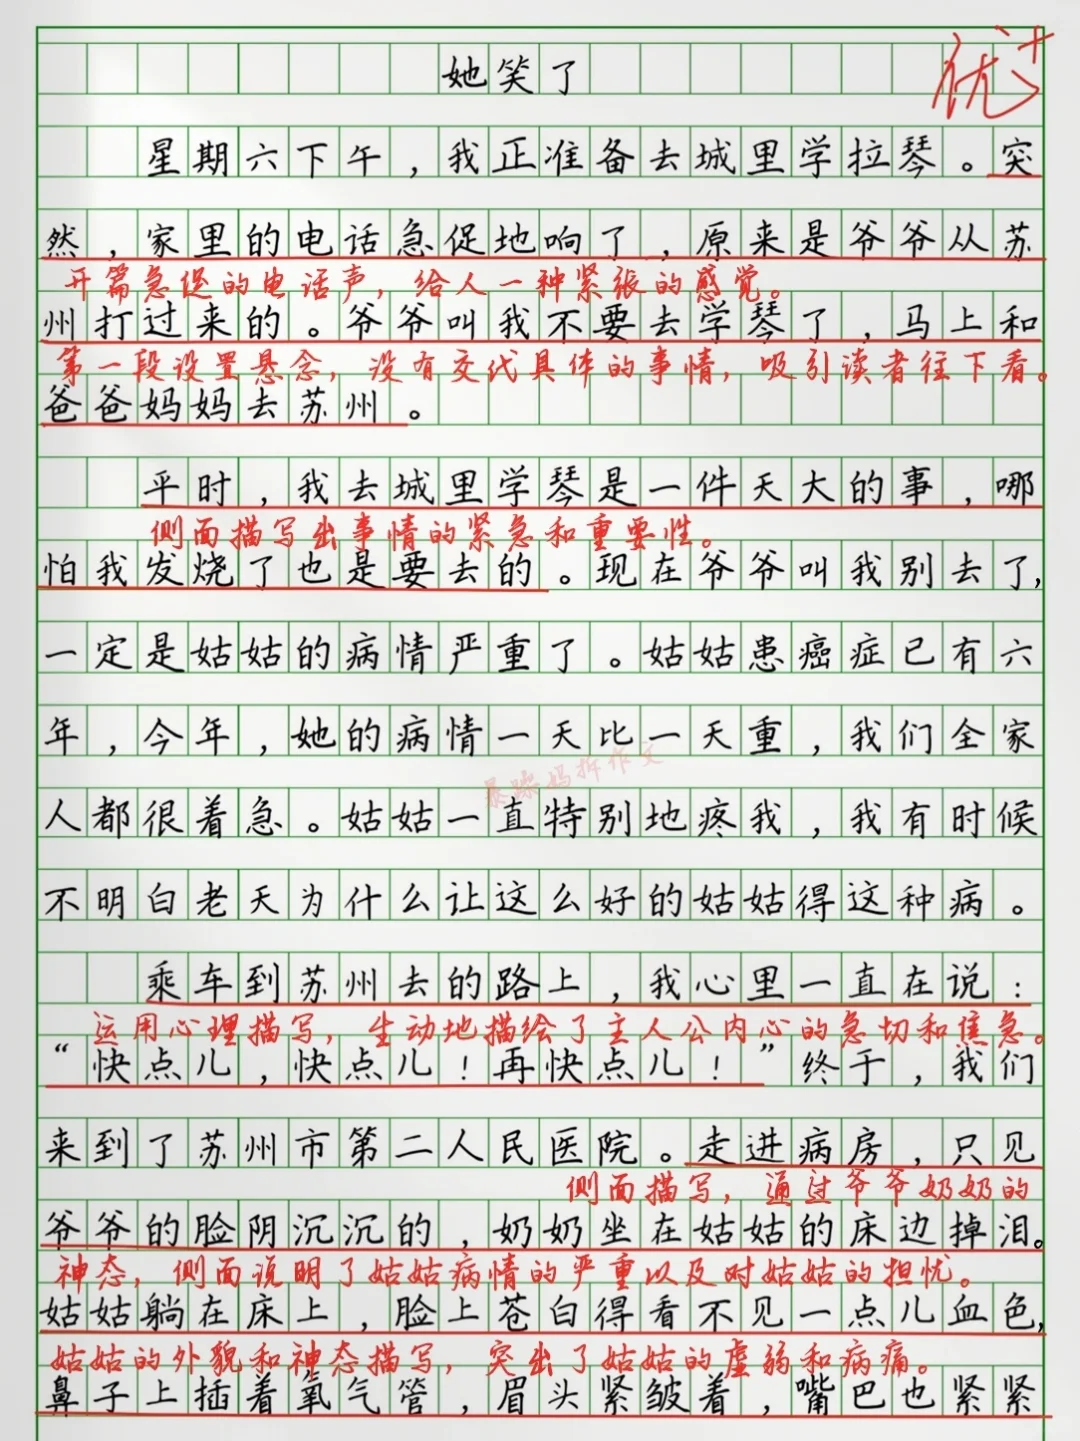 她笑了
优+
星期六下午，我正准备去城里学拉琴。突
然，家里的电话急促地响了，原来是爷爷从苏
开篇急促的电话声，给人一种紧张的感觉。
州打过来的。爷爷叫我不要去学琴了，马上和
第一段设置悬念，没有交代具体的事情，吸引读者往下看。
爸爸妈妈去苏州。
平时，我去城里学琴是一件天大的事，哪
侧面描写出事情的紧急和重要性。
怕我发烧了也是要去的。现在爷爷叫我别去了，
一定是姑姑的病情严重了。姑姑患癌症已有六
年，今年，她的病情一天比一天重，我们全家
暴躁妈拆作文
人都很着急。姑姑一直特别地疼我，我有时候
不明白老天为什么让这么好的姑姑得这种病。
乘车到苏州去的路上，我心里一直在说：
运用心理描写，生动地描绘了主人公内心的急切和焦急。
“快点儿，快点儿！再快点儿！”终于，我们
来到了苏州市第二人民医院。走进病房，只见
侧面描写，通过爷爷奶奶的
爷爷的脸阴沉沉的，奶奶坐在姑姑的床边掉泪。
神态，侧面说明了姑姑病情的严重以及对姑姑的担忧。
姑姑躺在床上，脸上苍白得看不见一点儿血色，
姑姑的外貌和神态描写，突出了姑姑的虚弱和病痛。
鼻子上插着氧气管，眉头紧皱着，嘴巴也紧紧